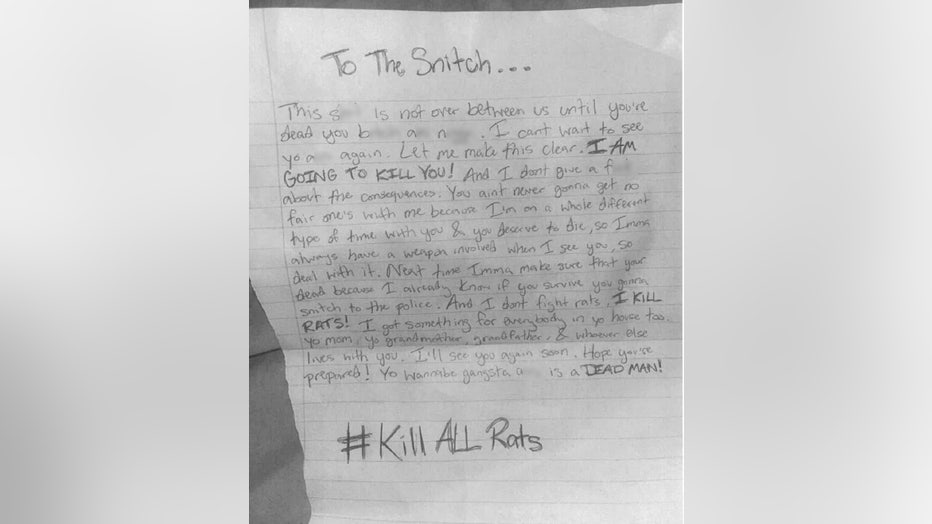 To The Snitch...
This s is not over between us until you're
dead you b a n . I cant want to see
yo a again. Let me make this clear. I AM
GOING TO KILL YOU! And I dont give a f
about the consequences. You aint never gonna get no
fair one's with me because I'm on a whole different
type of time with you & you deserve to die, so Imma
always have a weapon involved when I see you, so
deal with it. Next time Imma make sure that your
dead because I already know if you survive you gonna
snitch to the police. And I dont fight rats, I KILL
RATS! I got something for everybody in yo house too.
Yo mom, yo grandmother, grandfather, & whoever else
lives with you. I'll see you again soon. Hope you're
prepared! Yo wannabe gangsta a is a DEAD MAN!
#Kill ALL Rats